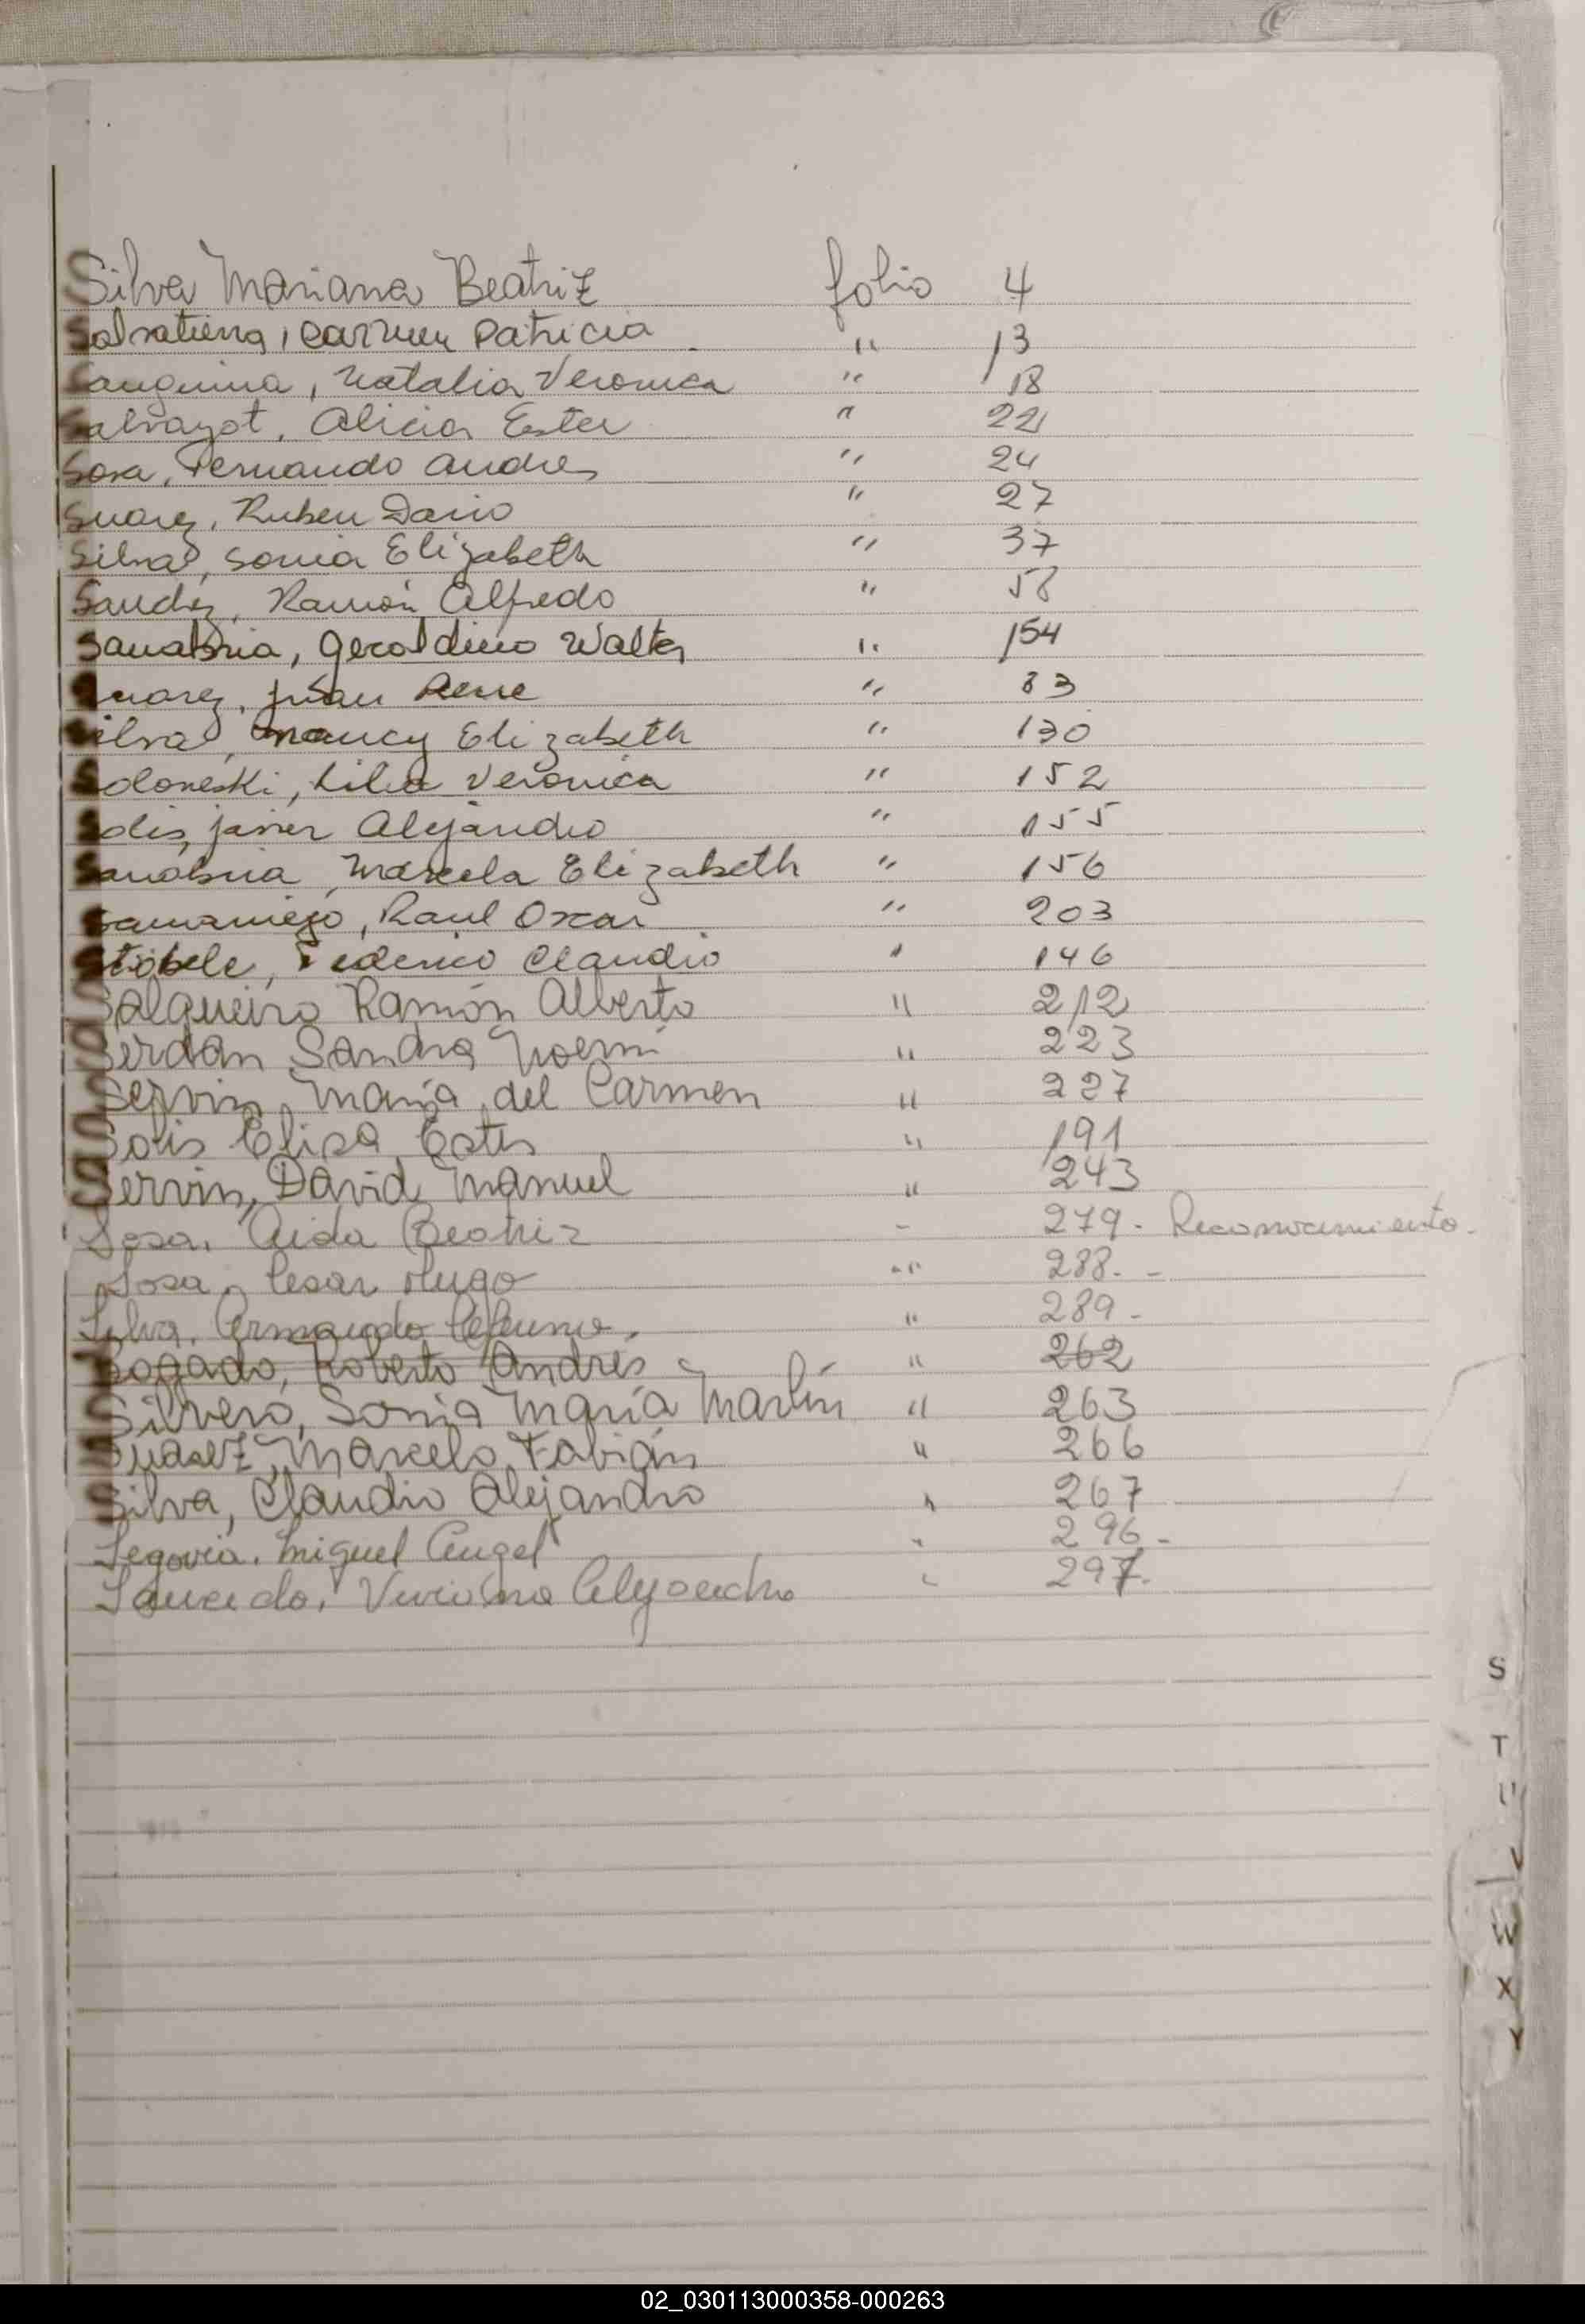 Silva Mariana Beatriz folio 4
Salvatierra, Carmen Patricia " 13
Sanguina, Natalia Veronica " 18
Salvayot, Alicia Ester " 22
Sosa, Fernando Andres " 24
Suarez, Ruben Dario " 27
Silva, Sonia Elizabeth " 37
Sanchez, Ramón Alfredo " 58
Sanabria, Geraldino Walter " 154
Suarez, Juan Rene " 83
Silva, Nancy Elizabeth " 130
Soloneski, Lilia Veronica " 152
Solis, Javier Alejandro " 155
Sanabria, Marcela Elizabeth " 156
Samaniego, Raul Oscar " 203
Stöbele, Federico Claudio " 146
Salgueiro Ramón Alberto " 212
Serdán Sandra Noemí " 223
Servin, María del Carmen " 227
Solis Elisa Ester " 191
Servin, David Manuel " 243
Sosa, Aida Beatriz - 279- Reconocimiento.
Sosa, Cesar Hugo " 288.-
Silva, Armando " 289-
Sogado, Roberto Andrés " 262
Silvero, Sonia María Marlín " 263
Suarez, Marcelo Fabián " 266
Silva, Claudio Alejandro " 267
Segovia, Miguel Angel " 296-
Saucedo, Viviana Alejandra " 297.
S
T
U
V
W
X
Y
02_030113000358-000263